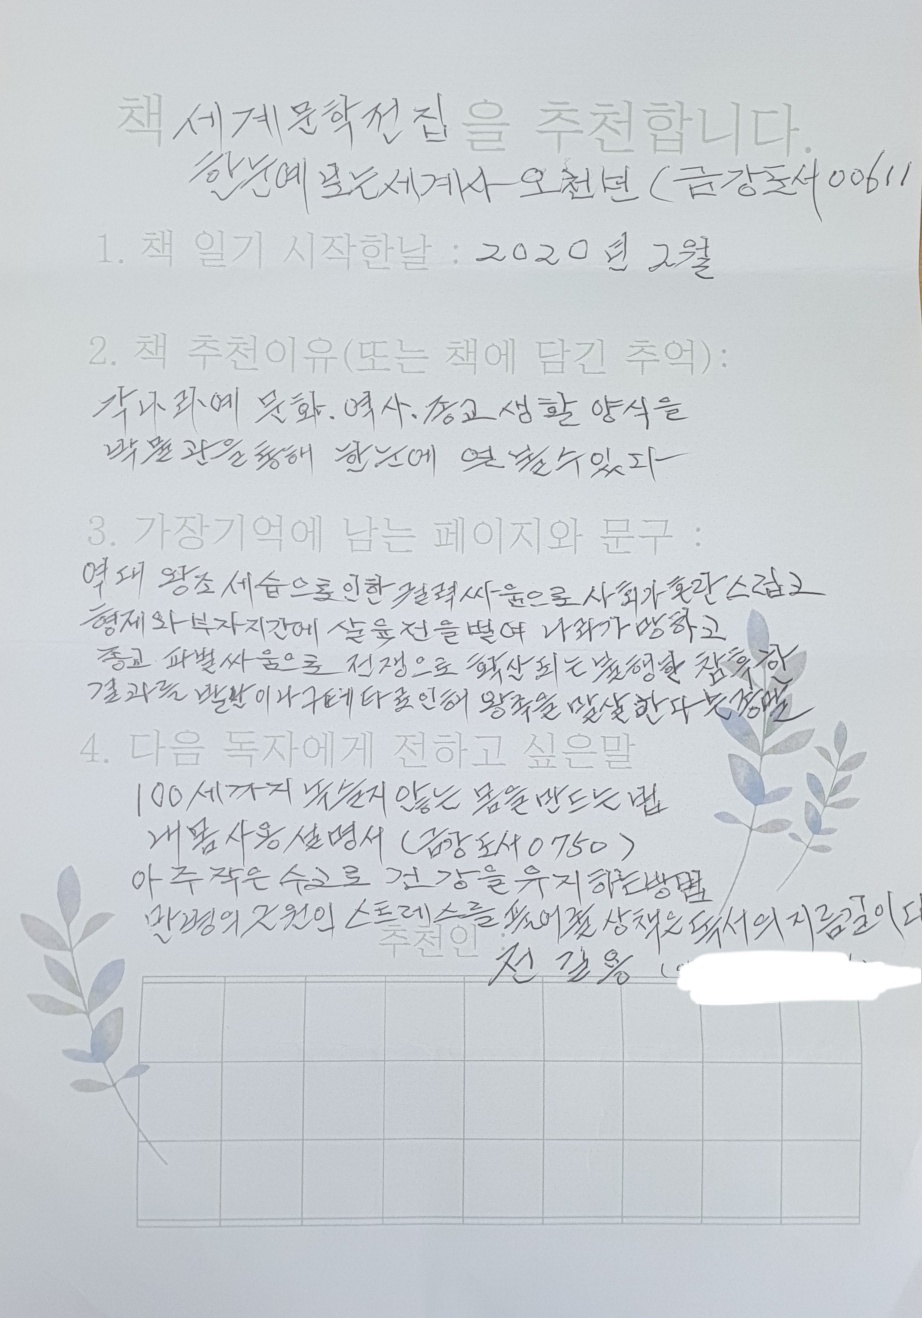 책 세계문학전집 을 추천합니다.
한눈에 보는 세계사 오천년 (금강도서 00611
1. 책 일기 시작한날 : 2020년 2월
2. 책 추천이유(또는 책에 담긴 추억):
각나라예 문화. 역사. 종교 생활 양식을
박물관을 통해 한눈에 수 있다
3. 가장기억에 남는 페이지와 문구 :
역대 왕조 세습으로 인한 권력싸움으로 사회가 혼란스럽고
형제와 부자지간에 살육전을 벌여 나라가 망하고
종교 파벌싸움으로 전쟁으로 확산되는 불행한 참혹한
결과를 반란이나 구데타로 인해 왕족을 말살한다
4. 다음 독자에게 전하고 싶은말
100세까지 녹슬지 않는 몸을 만드는 법
내몸 사용설명서 (금강도서 0750)
아주 작은 수고로 건강을 유지하는 방법
만병의 근원의 스트레스를 상책은 독서의 지름길이다
추천인 :
전 길 용